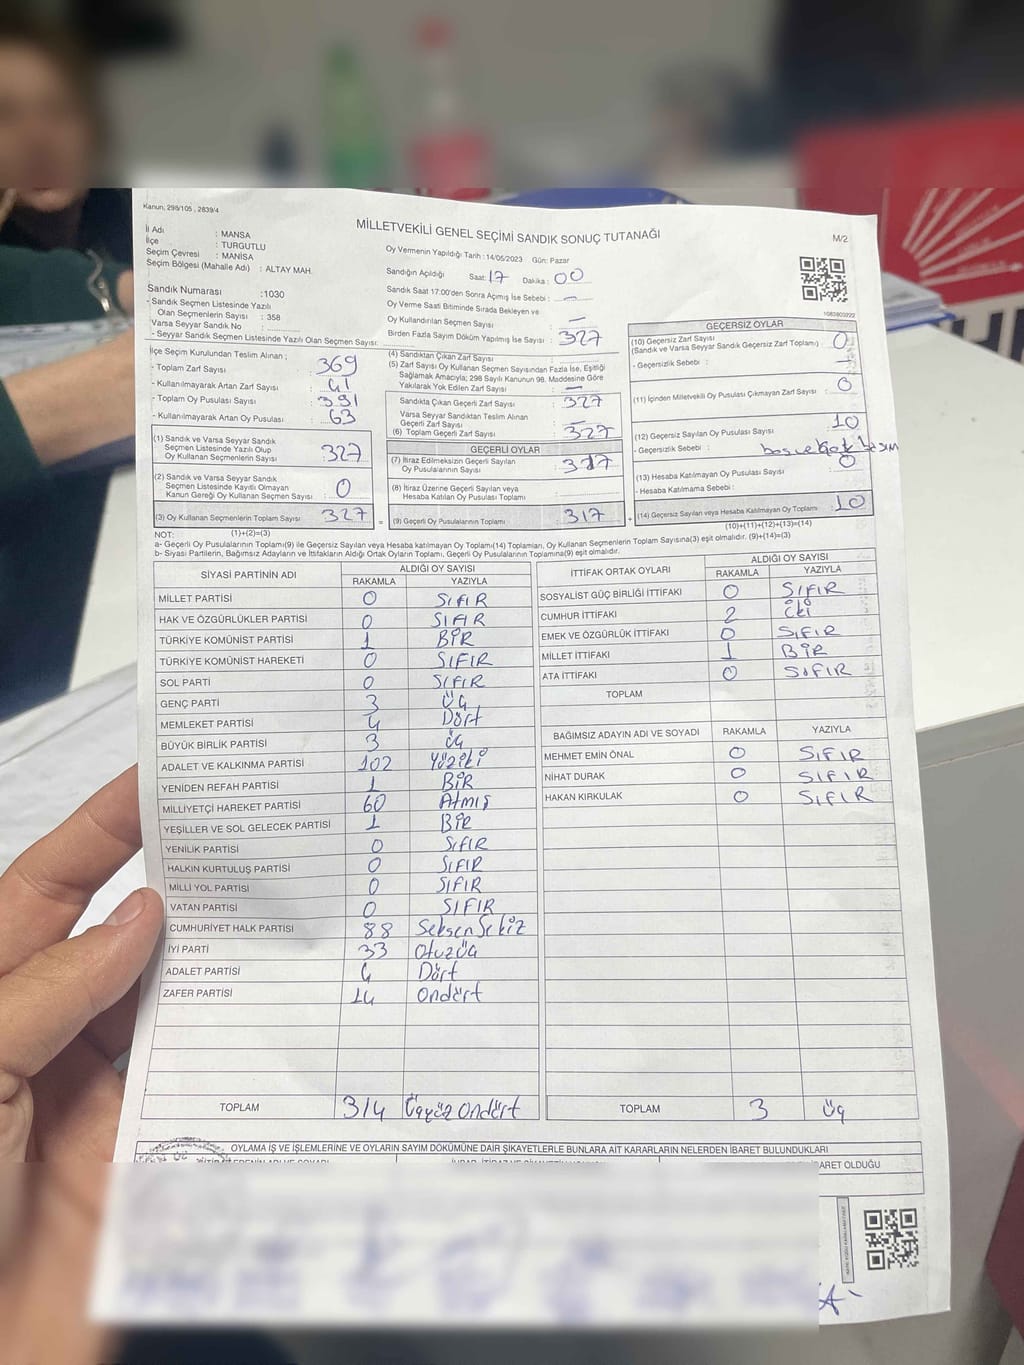 Kanun, 298/105 , 2839/4
MİLLETVEKİLİ GENEL SEÇİMİ SANDIK SONUÇ TUTANAĞI
M/2
İl Adı : MANSA
İlçe : TURGUTLU
Seçim Çevresi : MANİSA
Seçim Bölgesi (Mahalle Adı) : ALTAY MAH.
Oy Vermenin Yapıldığı Tarih : 14/05/2023 Gün: Pazar
Sandığın Açıldığı Saat: 17 Dakika: 00
Sandık Saat 17.00'den Sonra Açımış İse Sebebi : —
Oy Verme Saati Bitiminde Sırada Bekleyen ve
Oy Kullandırılan Seçmen Sayısı —
Birden Fazla Sayım Döküm Yapılmış İse Sayısı : 327
Sandık Numarası :1030
- Sandık Seçmen Listesinde Yazılı
Olan Seçmenlerin Sayısı : 358
Varsa Seyyar Sandık No :
- Seyyar Sandık Seçmen Listesinde Yazılı Olan Seçmen Sayısı:
İlçe Seçim Kurulundan Teslim Alınan ;
- Toplam Zarf Sayısı : 369
- Kullanılmayarak Artan Zarf Sayısı : 41
- Toplam Oy Pusulası Sayısı : 391
- Kullanılmayarak Artan Oy Pusulası : 63
(1) Sandık ve Varsa Seyyar Sandık
Seçmen Listesinde Yazılı Olup
Oy Kullanan Seçmenlerin Sayısı : 327
(2) Sandık ve Varsa Seyyar Sandık
Seçmen Listesinde Kayıtlı Olmayan
Kanun Gereği Oy Kullanan Seçmen Sayısı : 0
(3) Oy Kullanan Seçmenlerin Toplam Sayısı : 327
(1)+(2)=(3)
(4) Sandıktan Çıkan Zarf Sayısı :
(5) Zarf Sayısı Oy Kullanan Seçmen Sayısından Fazla İse, Eşitliği
Sağlamak Amacıyla; 298 Sayılı Kanunun 98. Maddesine Göre
Yakılarak Yok Edilen Zarf Sayısı : —
Sandıkta Çıkan Geçerli Zarf Sayısı : 327
Varsa Seyyar Sandıktan Teslim Alınan
Geçerli Zarf Sayısı : —
(6) Toplam Geçerli Zarf Sayısı : 327
GEÇERLİ OYLAR
(7) İtiraz Edilmeksizin Geçerli Sayılan
Oy Pusulalarının Sayısı : 317
(8) İtiraz Üzerine Geçerli Sayılan veya
Hesaba Katılan Oy Pusulası Toplamı :
= (9) Geçerli Oy Pusulalarının Toplamı : 317
1083803222
GEÇERSİZ OYLAR
(10) Geçersiz Zarf Sayısı
(Sandık ve Varsa Seyyar Sandık Geçersiz Zarf Toplamı) : 0
- Geçersizlik Sebebi : —
(11) İçinden Milletvekili Oy Pusulası Çıkmayan Zarf Sayısı : 0
(12) Geçersiz Sayılan Oy Pusulası Sayısı : 10
- Geçersizlik Sebebi :
(13) Hesaba Katılmayan Oy Pusulası Sayısı : 0
- Hesaba Katılmama Sebebi :
+ (14) Geçersiz Sayılan veya Hesaba Katılmayan Oy Toplamı : 10
(10)+(11)+(12)+(13)=(14)
NOT:
a- Geçerli Oy Pusulalarının Toplamı(9) ile Geçersiz Sayılan veya Hesaba katılmayan Oy Toplamı(14) Toplamları, Oy Kullanan Seçmenlerin Toplam Sayısına(3) eşit olmalıdır. (9)+(14)=(3)
b- Siyasi Partilerin, Bağımsız Adayların ve İttifakların Aldığı Ortak Oyların Toplamı, Geçerli Oy Pusulalarının Toplamına(9) eşit olmalıdır.
SİYASİ PARTİNİN ADI ALDIĞI OY SAYISI
RAKAMLA YAZIYLA
MİLLET PARTİSİ 0 SIFIR
HAK VE ÖZGÜRLÜKLER PARTİSİ 0 SIFIR
TÜRKİYE KOMÜNİST PARTİSİ 1 BİR
TÜRKİYE KOMÜNİST HAREKETİ 0 SIFIR
SOL PARTİ 0 SIFIR
GENÇ PARTİ 3 Üç
MEMLEKET PARTİSİ 4 Dört
BÜYÜK BİRLİK PARTİSİ 3 üç
ADALET VE KALKINMA PARTİSİ 102 Yüziki
YENİDEN REFAH PARTİSİ 1 BİR
MİLLİYETÇİ HAREKET PARTİSİ 60 Atmış
YEŞİLLER VE SOL GELECEK PARTİSİ 1 BİR
YENİLİK PARTİSİ 0 SIFIR
HALKIN KURTULUŞ PARTİSİ 0 SIFIR
MİLLİ YOL PARTİSİ 0 SIFIR
VATAN PARTİSİ 0 SIFIR
CUMHURİYET HALK PARTİSİ 88 Seksen Sekiz
İYİ PARTİ 33 Otuzüç
ADALET PARTİSİ 4 Dört
ZAFER PARTİSİ 14 Ondört
TOPLAM 314 Üçyüz Ondört
İTTİFAK ORTAK OYLARI ALDIĞI OY SAYISI
RAKAMLA YAZIYLA
SOSYALİST GÜÇ BİRLİĞİ İTTİFAKI 0 SIFIR
CUMHUR İTTİFAKI 2 iki
EMEK VE ÖZGÜRLÜK İTTİFAKI 0 SIFIR
MİLLET İTTİFAKI 1 BİR
ATA İTTİFAKI 0 SIFIR
TOPLAM
BAĞIMSIZ ADAYIN ADI VE SOYADI RAKAMLA YAZIYLA
MEHMET EMİN ÖNAL 0 SIFIR
NİHAT DURAK 0 SIFIR
HAKAN KIRKULAK 0 SIFIR
TOPLAM 3 Üç
OYLAMA İŞ VE İŞLEMLERİNE VE OYLARIN SAYIM DÖKÜMÜNE DAİR ŞİKAYETLERLE BUNLARA AİT KARARLARIN NELERDEN İBARET BULUNDUKLARI
BARET OLDUĞU